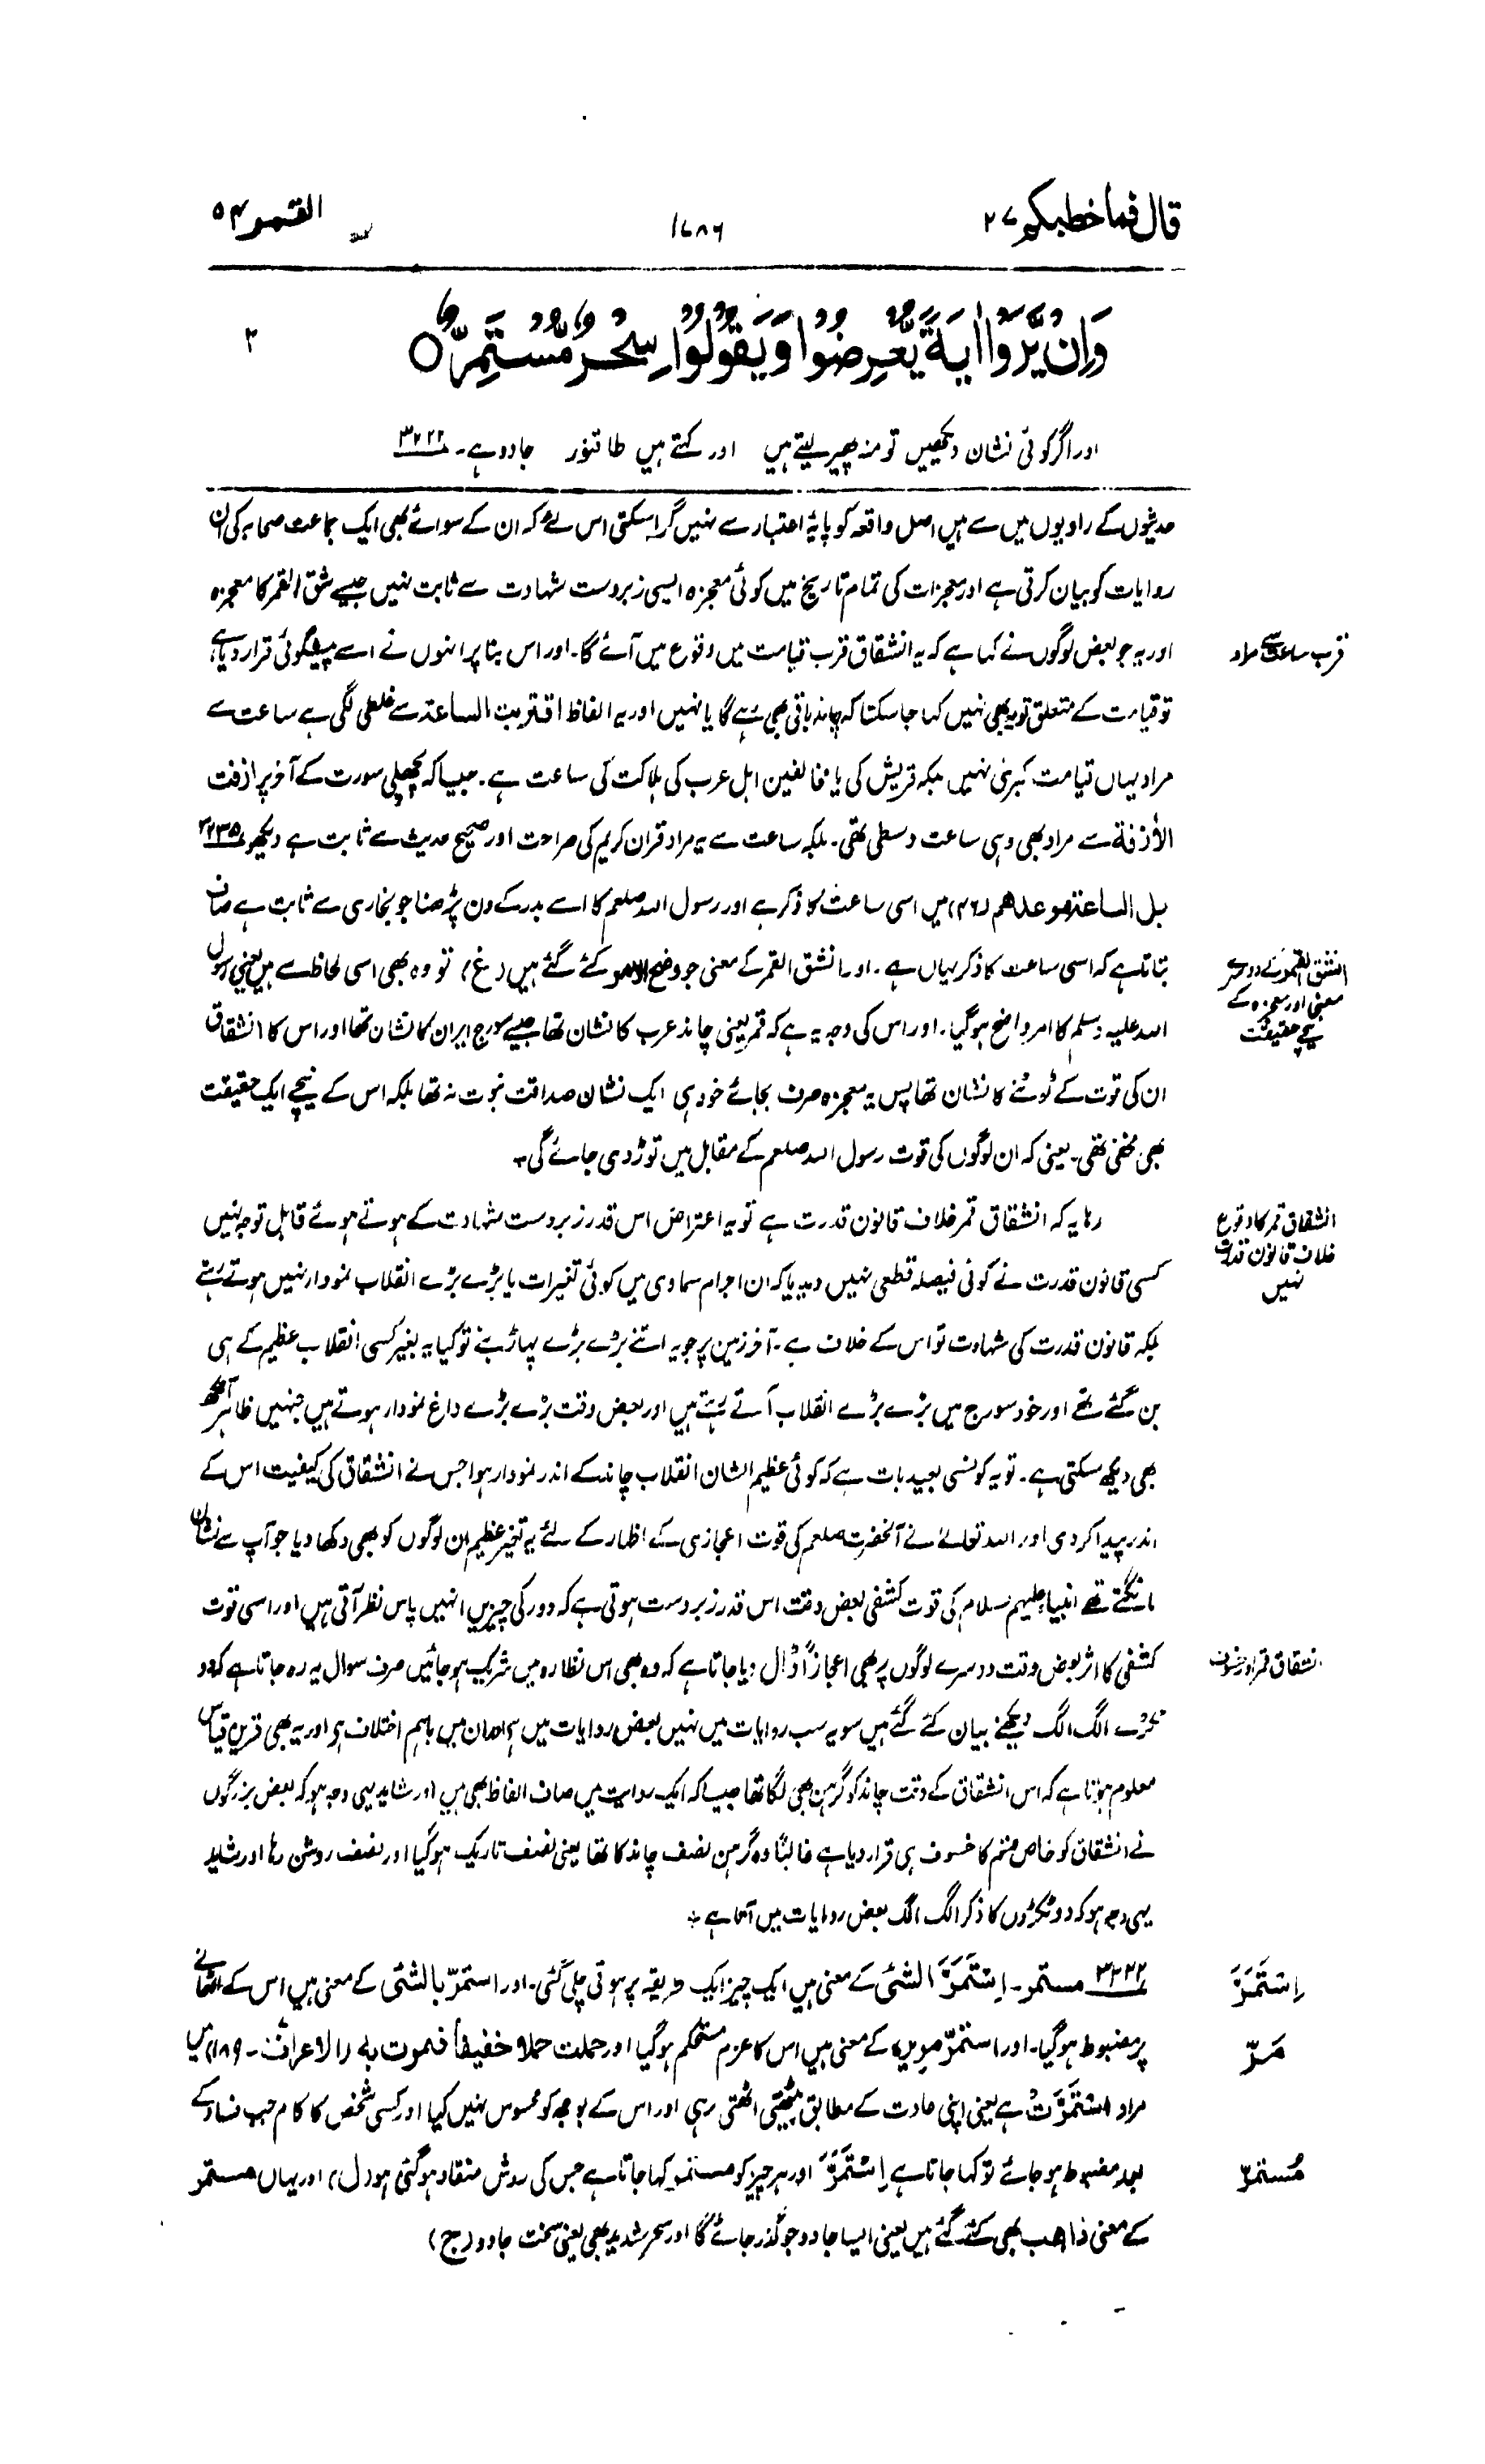 قال فما خطبکم ۲۷
۱۷۸۶
القمر ۵۴
وَاِنْ يَّرَوْا اٰيَةً يُّعْرِضُوْا وَيَقُوْلُوْا سِحْرٌ مُّسْتَمِرٌّ ○
۲
اور اگر کوئی نشان دیکھیں تو منہ پھیر لیتے ہیں اور کہتے ہیں طاقتور جادو ہے۔ ۳۲۲۲
حدیثوں کے راویوں میں سے ہیں اصل واقعہ کو پایۂ اعتبار سے نہیں گرا سکتی اس لئے کہ ان کے سوائے بھی ایک جماعت صحابہ کی ان
روایات کو بیان کرتی ہے اور معجزات کی تمام تاریخ میں کوئی معجزہ ایسی زبردست شہادت سے ثابت نہیں جیسے شق القمر کا معجزہ
قرب ساعت سے مراد
اور یہ جو بعض لوگوں نے کہا ہے کہ یہ انشقاق قرب قیامت میں وقوع میں آئے گا۔ اور اس بنا پر انہوں نے اسے پیشگوئی قرار دیا ہے،
تو قیامت کے متعلق تو یہ بھی نہیں کہا جا سکتا کہ چاند باقی بھی رہے گا یا نہیں اور یہ الفاظ اقتربت الساعۃ سے غلطی لگی ہے ساعت سے
مراد یہاں قیامت کبریٰ نہیں بلکہ قریش کی یا مخالفین اہل عرب کی ہلاکت کی ساعت ہے۔ جیسا کہ پچھلی سورت کے آخر پر ازفت
الأزفة سے مراد بھی وہی ساعت وسطی تھی۔ بلکہ ساعت سے یہ مراد قرآن کریم کی صراحت اور صحیح حدیث سے ثابت ہے دیکھو ۳۲۳۵
بل الساعۃ موعدھم (۴۶) میں اسی ساعت کا ذکر ہے اور رسول اللہ صلعم کا اسے بدر کے دن پڑھنا جو بخاری سے ثابت ہے صاف
انشق القمر کے دوسرے
معنی اور معجزہ کے
نیچے حقیقت
بتاتا ہے کہ اسی ساعت کا ذکر یہاں ہے۔ اور انشق القمر کے معنی جو وضح الامر کئے گئے ہیں (غ) تو وہ بھی اسی لحاظ سے ہیں یعنی رسول
اللہ علیہ وسلم کا امر واضح ہو گیا۔ اور اس کی وجہ یہ ہے کہ قمر یعنی چاند عرب کا نشان تھا جیسے سورج ایران کا نشان تھا اور اس کا انشقاق
ان کی قوت کے ٹوٹنے کا نشان تھا پس یہ معجزہ صرف بجائے خود ہی ایک نشان صداقت نبوت نہ تھا بلکہ اس کے نیچے ایک حقیقت
بھی مخفی تھی۔ یعنی کہ ان لوگوں کی قوت رسول اللہ صلعم کے مقابل میں توڑ دی جائے گی۔
انشقاق قمر کا وقوع
خلاف قانون قدرت
نہیں
رہا یہ کہ انشقاق قمر خلاف قانون قدرت ہے تو یہ اعتراض اس قدر زبردست شہادت کے ہوتے ہوئے قابل توجہ نہیں
کسی قانون قدرت نے کوئی فیصلہ قطعی نہیں دیدیا کہ ان اجرام سماوی میں کوئی تغیرات یا بڑے بڑے انقلاب نمودار نہیں ہوتے رہتے
بلکہ قانون قدرت کی شہادت تو اس کے خلاف ہے۔ آخر زمین پر جو یہ اتنے بڑے بڑے پہاڑ بنے تو کیا یہ بغیر کسی انقلاب عظیم کے ہی
بن گئے تھے اور خود سورج میں بڑے بڑے انقلاب آتے رہتے ہیں اور بعض وقت بڑے بڑے داغ نمودار ہوتے ہیں جنہیں ظاہر آنکھ
بھی دیکھ سکتی ہے۔ تو یہ کونسی بعید بات ہے کہ کوئی عظیم الشان انقلاب چاند کے اندر نمودار ہوا جس نے انشقاق کی کیفیت اس کے
اندر پیدا کر دی اور اللہ تعالےٰ نے آنحضرت صلعم کی قوت اعجازی کے اظہار کے لئے یہ تغیر عظیم ان لوگوں کو بھی دکھا دیا جو آپ سے نشان
مانگتے تھے انبیا علیہم السلام کی قوت کشفی بعض وقت اس قدر زبردست ہوتی ہے کہ دور کی چیزیں انہیں پاس نظر آتی ہیں اور اسی قوت
انشقاق قمر اور خسوف
کشفی کا اثر بعض وقت دوسرے لوگوں پر بھی اعجازاً ڈال دیا جاتا ہے کہ وہ بھی اس نظارہ میں شریک ہو جائیں صرف سوال یہ رہ جاتا ہے کہ دو
ٹکڑے الگ الگ دیکھنے بیان کئے گئے ہیں سو یہ سب روایات میں نہیں بعض روایات میں ہے اور ان میں باہم اختلاف ہے اور یہ بھی قرین قیاس
معلوم ہوتا ہے کہ اس انشقاق کے وقت چاند کو گرہن بھی لگا تھا جیسا کہ ایک روایت میں صاف الفاظ بھی ہیں اور شاید یہی وجہ ہو کہ بعض بزرگوں
نے انشقاق کو خاص قسم کا خسوف ہی قرار دیا ہے غالباً وہ گرہن نصف چاند کا تھا یعنی نصف تاریک ہو گیا اور نصف روشن رہا اور شاید
یہی وجہ ہو کہ دو ٹکڑوں کا ذکر الگ الگ بعض روایات میں آتا ہے۔
اِسْتَمَرَّ
۳۲۲۲ مستمر۔ اِسْتَمَرَّ الشئی کے معنی ہیں ایک چیز ایک طریقہ پر ہوتی چلی گئی۔ اور استمرّ بالشئی کے معنی ہیں اس کے اٹھانے
مَرّ
پر مضبوط ہو گیا۔ اور استمرّ مریرہ کے معنی ہیں اس کا عزم مستحکم ہو گیا اور حملت حملا خفیفاً فمرت بہ (الاعراف۔ ۱۸۹) میں
مراد اسْتَمَرَّتْ ہے یعنی اپنی عادت کے مطابق بیٹھتی اٹھتی رہی اور اس کے بوجھ کو محسوس نہیں کیا اور کسی شخص کا کام جب فساد کے
مُستمرّ
بعد مضبوط ہو جائے تو کہا جاتا ہے اِسْتَمَرَّ اور ہر چیز کو مستمر کہا جاتا ہے جس کی روش منقاد ہو گئی ہو (ل) اور یہاں مستمر
کے معنی ذاھب بھی کئے گئے ہیں یعنی ایسا جادو جو گذر جائے گا اور سحر شدید بھی یعنی سخت جادو (ج)